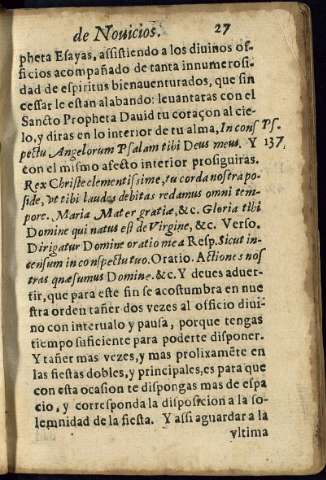 de Nouicios. 27
pheta Esayas, assistiendo a los diuinos of-
ficios acompañado de tanta innumerosi-
dad de espiritus bienauenturados, que sin
cessar le estan alabando: leuantaras con el
Sancto Propheta Dauid tu coraçon al cie-
lo, y diras en lo interior de tu alma, In cons
pectu Angelorum Psalam tibi Deus meus. Y
Ps.
137
con el mismo afecto interior prosiguiras.
Rex Christe clementissime, tu corda nostra po-
side, vt tibi laudes debitas redamus omni tem-
pore. Maria Mater gratiæ, &c. Gloria tibi
Domine qui natus est de Virgine, &c. Verso.
Dirigatur Domine oratio mea Resp. Sicut in-
censum in conspectu tuo. Oratio. Actiones nos
tras quæsumus Domine. &c. Y deues aduer-
tir, que para este fin se acostumbra en nue
stra orden tañer dos vezes al officio diui-
no con interualo y pausa, porque tengas
tiempo suficiente para poderte disponer.
Y tañer mas vezes, y mas prolixamēte en
las fiestas dobles, y principales, es para que
con esta ocasion te dispongas mas de espa
cio, y corresponda la disposicion a la so-
lemnidad de la fiesta. Y assi aguardar a la
vltima